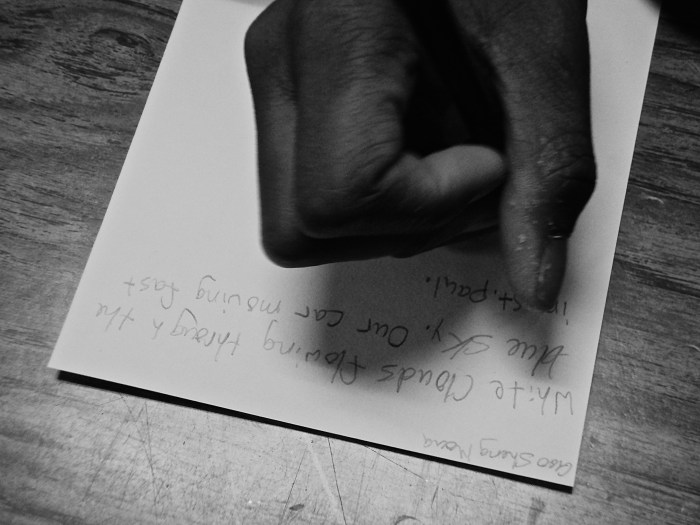 Gao Sheng Nang
White Clouds flowing through the
blue sky. Our car moving fast
in st. paul.